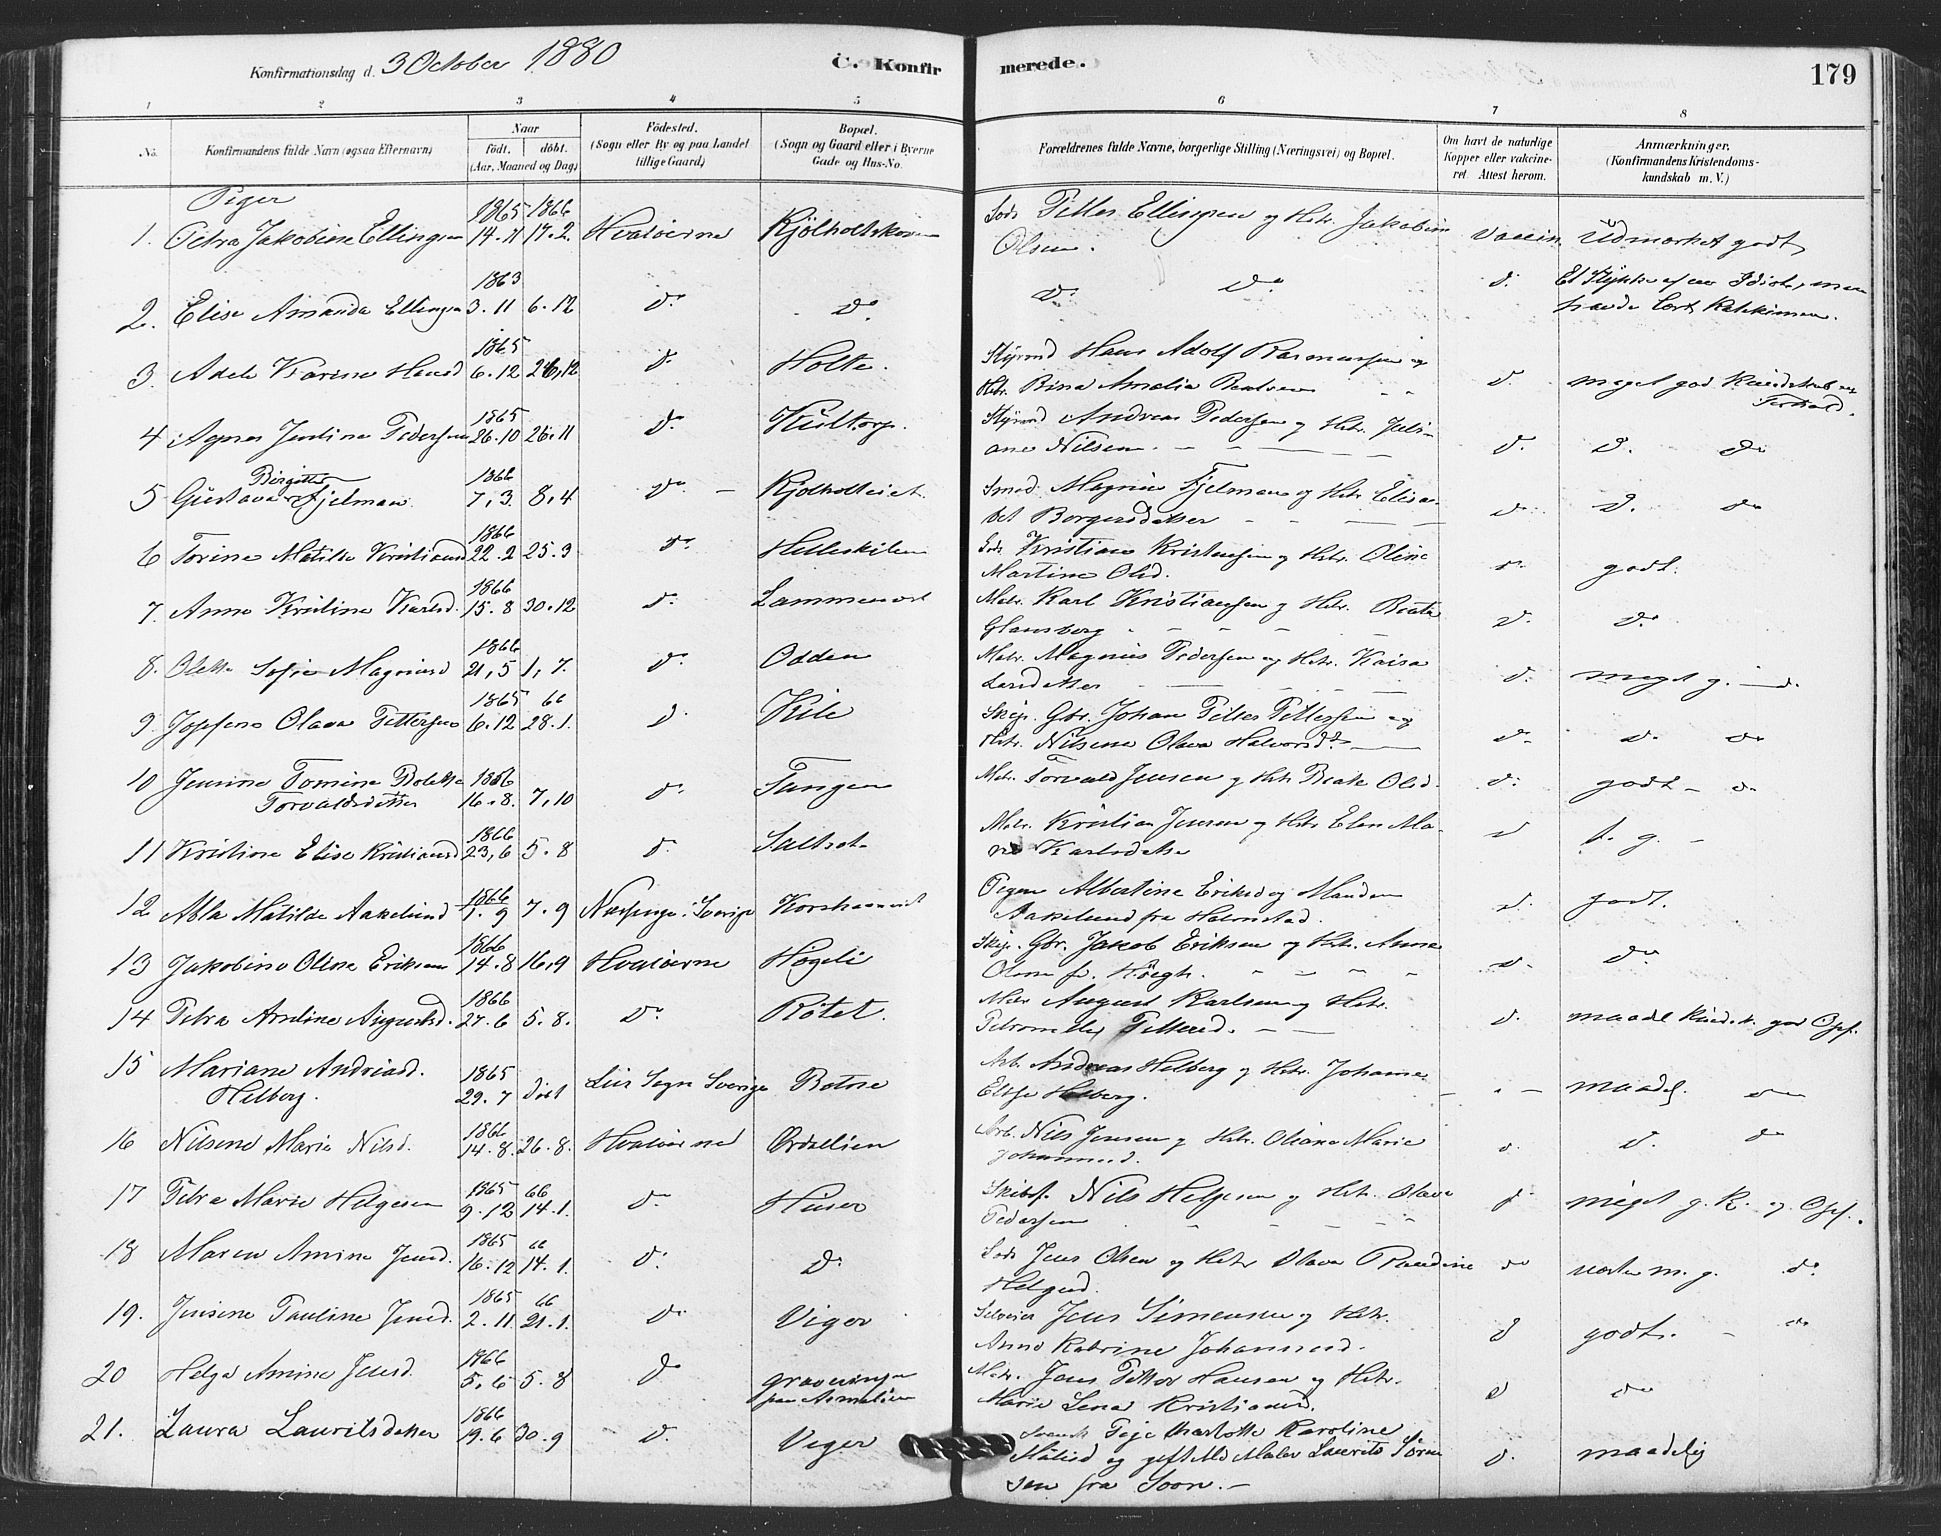 Konfirmationsdag d. 3 October 1880
C. Konfirmerede.
179
1 2 3 4 5 6 7 8
No.
Konfirmandens fulde Navn (ogsaa Efternavn)
Naar
födt. döbt.
(Aar, Maaned og Dag)
Födested.
(Sogn eller By og paa Landet tillige Gaard)
Bopæl.
(Sogn og Gaard eller i Byerne Gade og Hus-No.
Forældrenes fulde Navne, borgerlige Stilling (Næringsvei) og Bopæl.
Om havt de naturlige Kopper eller vakcineret. Attest herom.
Anmærkninger.
(Konfirmandens Kristendomskundskab m. V.)
Piger
1. Petra Jakobine Ellingsen 1865 14.11 1866 17.2. Hvaløerne Kjölholtskoven
Petter Ellingsen og Hstr. Jakobine
Olsen. Vaccin. Udmærket godt
2. Elise Amanda Ellingsen 1863 3.11 6.12 do do
do do d. Et Stykke af en Idiot, men
havde lært Katekismen.
3. Adele Karine Hansd 1865 6.12 26,12 d. Holte.
Styrmd Hans Adolf Rasmussen og
Hstr. Bina Amalia d. meget god Kundskab og
Forhold.
4 Agnes Justine Pedersen 1865 26.10 26.11 d. Kultorp.
Styrmd Andreas Pedersen og Hstr. Juliane
Nilsen. d. d. do
5 Gustava Birgitte Fjelman 1866 7,3. 8,4 do Kjölholteiet
Smed. Magnus Fjelman og Hstr. Elisabet
Borgersdatter d. d. do
6 Torine Matilde Kristiansd 1866 22.2 25.3 d. Helleskilen
Kristian Kristensen og Hstr. Oline
Martine Olsd. d. godt.
7. Anne Kristine Karlsd. 1866 15.8 30.12 d.
Matr. Karl Kristiansen og Hstr. Beata
Glansberg d. d.
8. Olette Sofie Magnusd 1866 21,5 1,7. d. Odden
Matr. Magnus Pedersen og Hstr. Kaisa
Larsdatter d. meget g. d.
9. Josefine Olava Pettersen 1865 6.12 66 28.1. d. Kile
Skip. Gbr. Johan Petter Pettersen og
Hstr. Nilsene Olava Halvorsd. d. d. do
10 Jensine Tomine Bolette
Torvaldsdatter 1866 16.8. 7,10 d. Tangen
Matr. Torvald Jensen og Hstr Beate Olsd. d. godt do
11 Kristine Elise Kristiansd 1866 23,6 5.8 d. Saltnet
Matr. Kristian Jensen og Hstr Elen Marie
Karlsdatter d g.
12 Abla Matilde Aakelund 1866 1.9 7.9 i Sverige Korshavn
Pigen Albertine Eriksd og Manden
Aakelund fra Halmstad. d. godt.
13 Jakobine Oline Eriksen 1866 14.8 16.9 Hvaløerne Högeli
Skip. Gbr. Jakob Eriksen og Hstr. Anne
Olsen f. Höegh. d. do
14 Petra Andine Augustsd. 1866 27.6 5.8. do Rötet.
Matr August Karlsen og Hstr.
Petronille Pettersd. d. maadl Kundsk. god Opf.
15 Mariane Andreasd.
Helberg. 1865 29.7 döbt Sogn Sverige Botne
Arb. Andreas Helberg og Hstr. Johanne
Helberg. maadel. do
16 Nilsene Marie Nilsd. 1866 14.8. 26.8. Hvaløerne
Arb. Nils Jensen og Hstr. Oliane Marie
Johannesd. d. d. do
17 Petra Marie Helgesen 1865 9.12 66 14.1. do Huser
Skibsf. Nils Helgesen og Hstr. Olava
Pedersen d meget g. K. og Opf.
18 Maren Amine Jensd. 1865 16.12 66 14.1. d. d.
Jens Olsen og Hstr Olava Pauline
Helgesd. do m. g. do
19. Jensine Pauline Jensd. 1865 2.11. 66 21.1. do Viger
Selveier Jens Simensen og Hstr.
Anne Katrine Johannesd. d godt. do
20 Helga Amine Jensd. 1866 5.6 5.8 do
paa Asmaløen
Matr. Jens Petter Hansen og Hstr.
Marie Lena Kristiansd. d do
21. Laura Lauritsdatter 1866 19.6 30.9 d. Viger
Svensk Pige Charlotte Karoline
og gift Maler Laurits Sörensen
fra Soon. d. maadelig